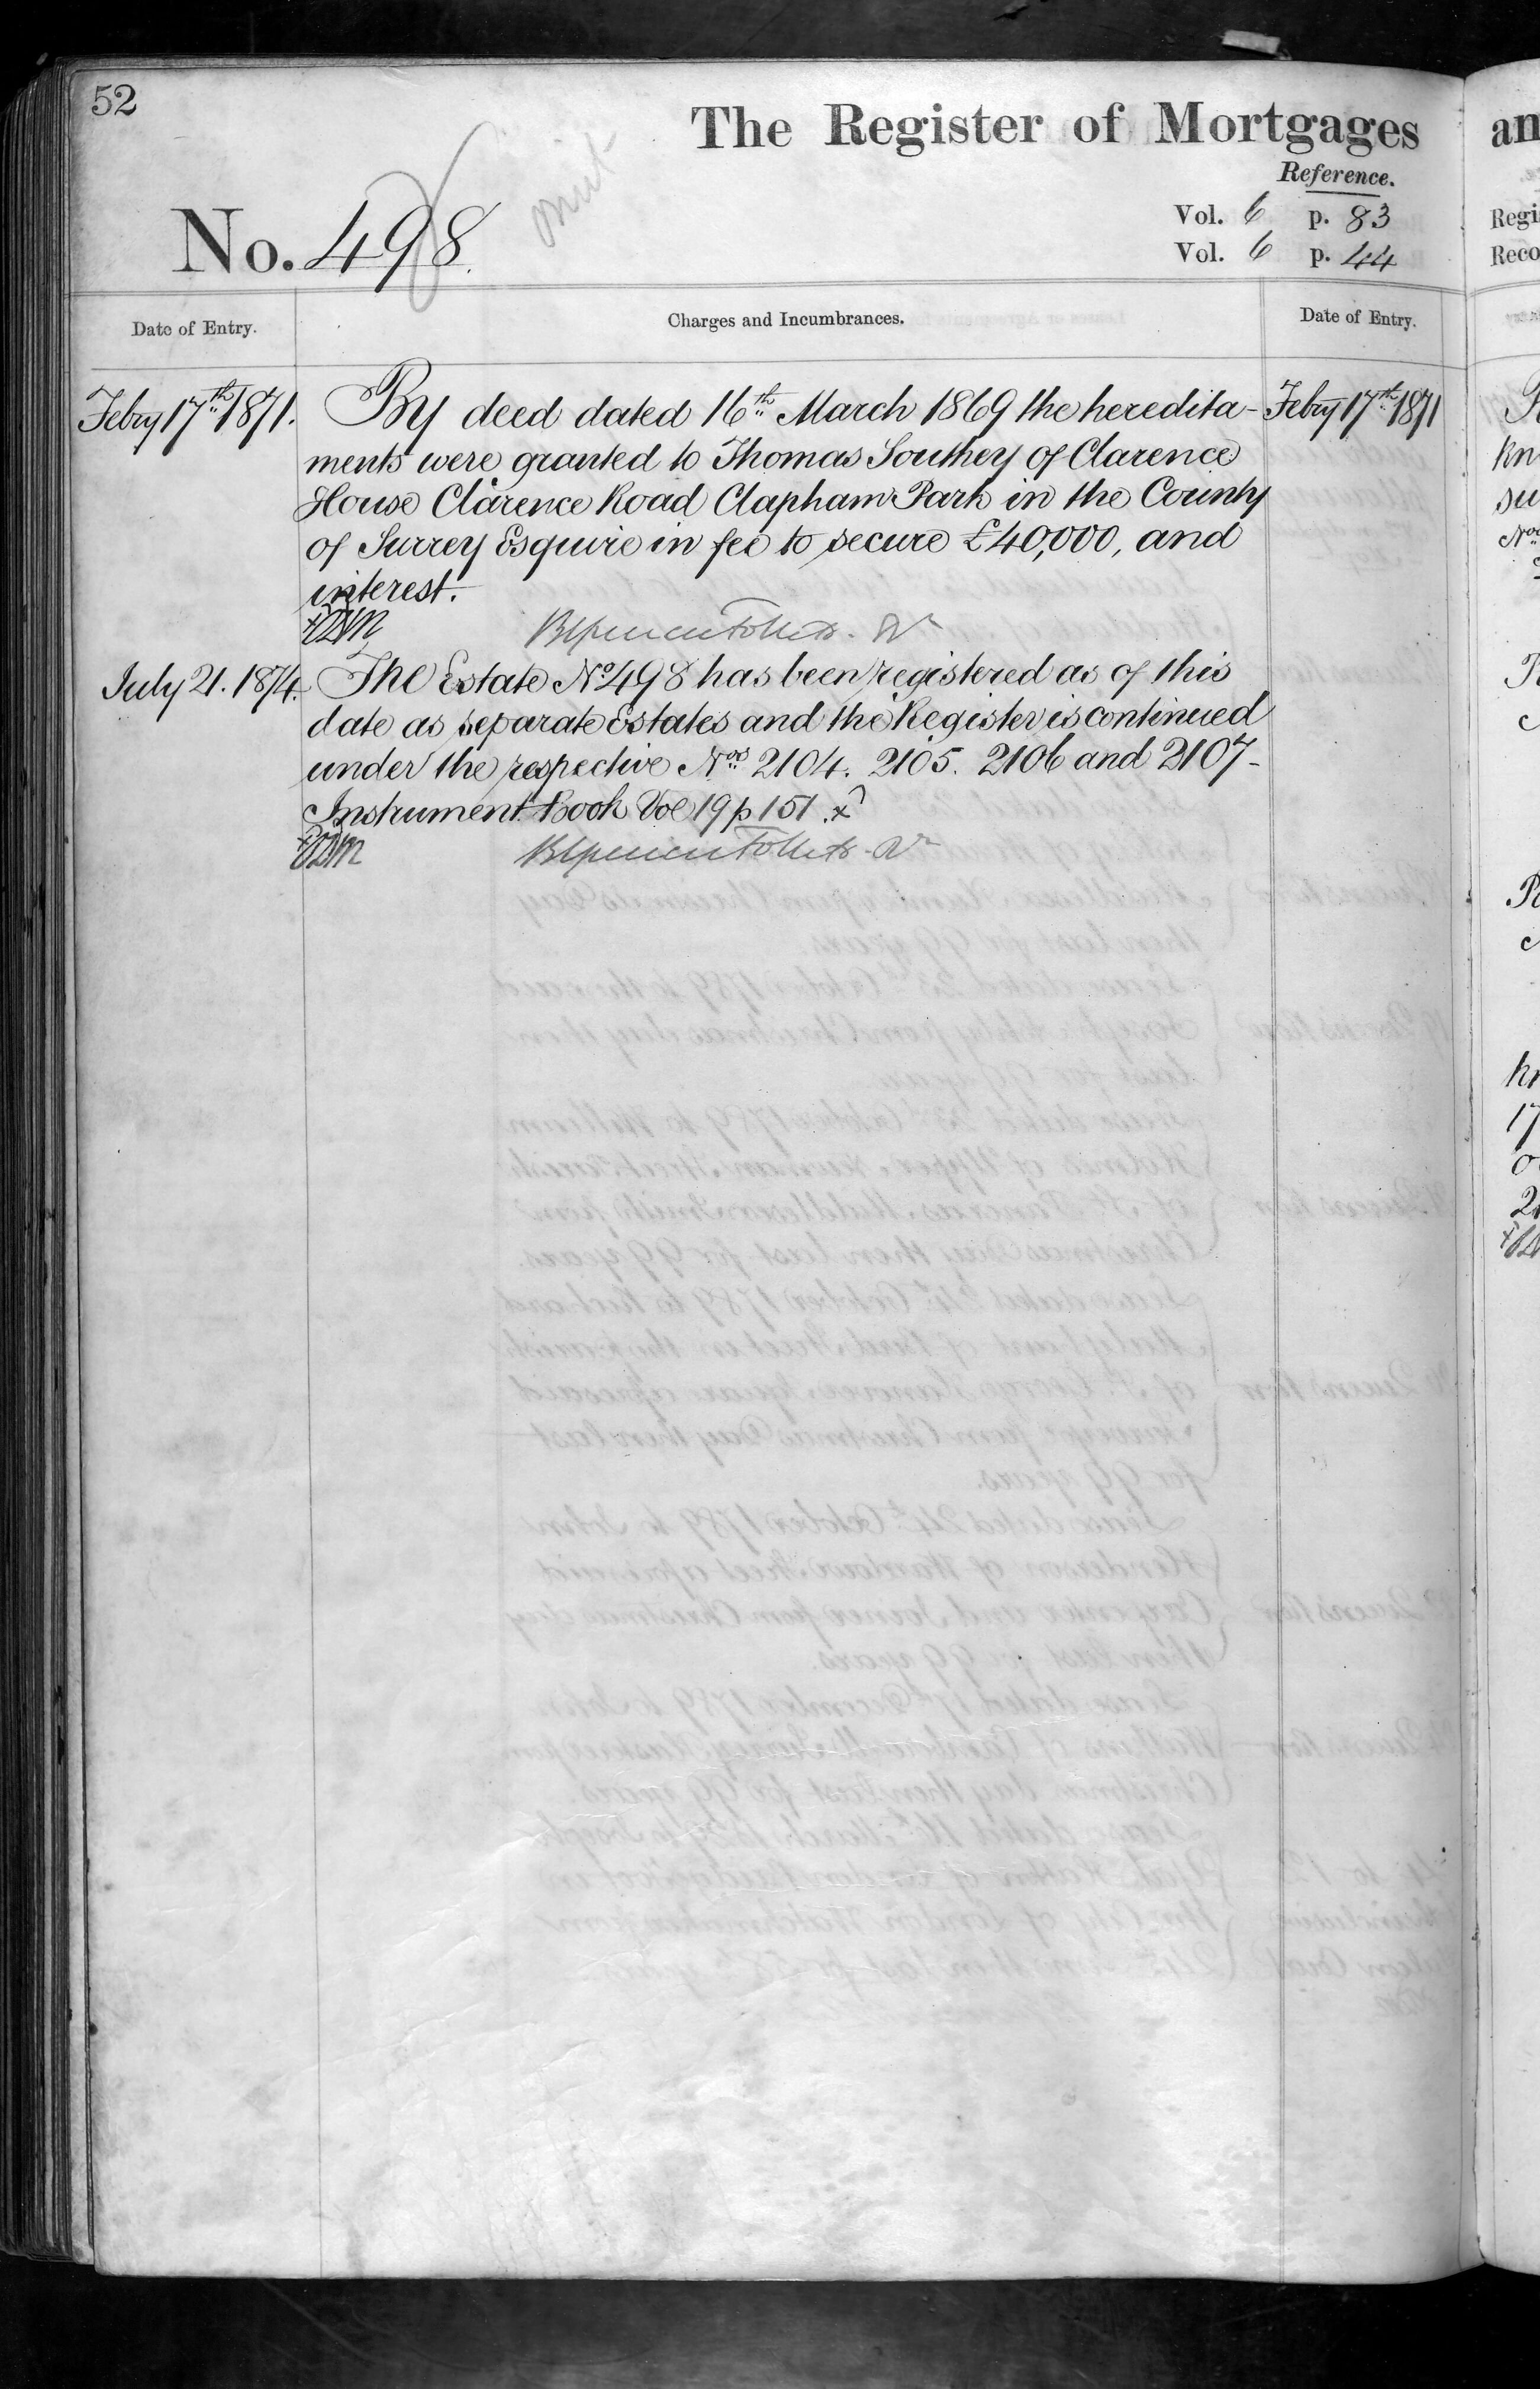 52
The Register of Mortgages
Reference.
Vol. 6 p. 83
Vol. 6 p. 44
No. 498.
omit
Date of Entry.
Charges and Incumbrances.
Date of Entry.
Febry 17th 1871.
By deed dated 16th March 1869 the heredita-
Febry 17th 1871
ments were granted to Thomas Southey of Clarence
House Clarence Road Clapham Park in the County
of Surrey Esquire in fee to secure £40,000, and
interest.
July 21. 1874.
The Estate No 498 has been registered as of this
date as separate Estates and the Register is continued
under the respective Nos 2104. 2105. 2106 and 2107-
Instrument Book Vol 19 p 151. x
an
Regi
Reco